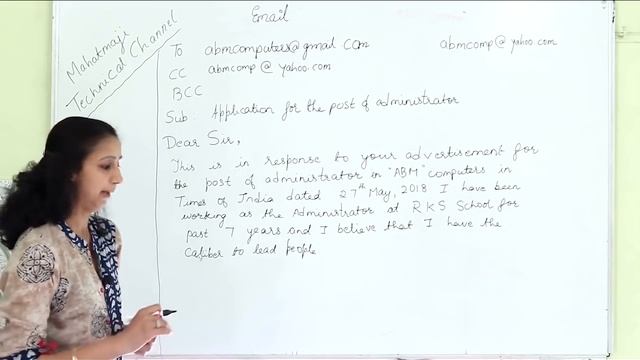 Email
Mahatmaji
Technical Channel
To abmcomputers@gmail com
abmcomp@yahoo.com
CC abmcomp@yahoo.com
BCC
Sub. Application for the post of administrator
Dear Sir,
This is in response to your advertisement for
the post of administrator in "ABM" computers in
Times of India dated 27th May, 2018 I have been
working as the Administrator at RKS School for
past 7 years and I believe that I have the
caliber to lead people